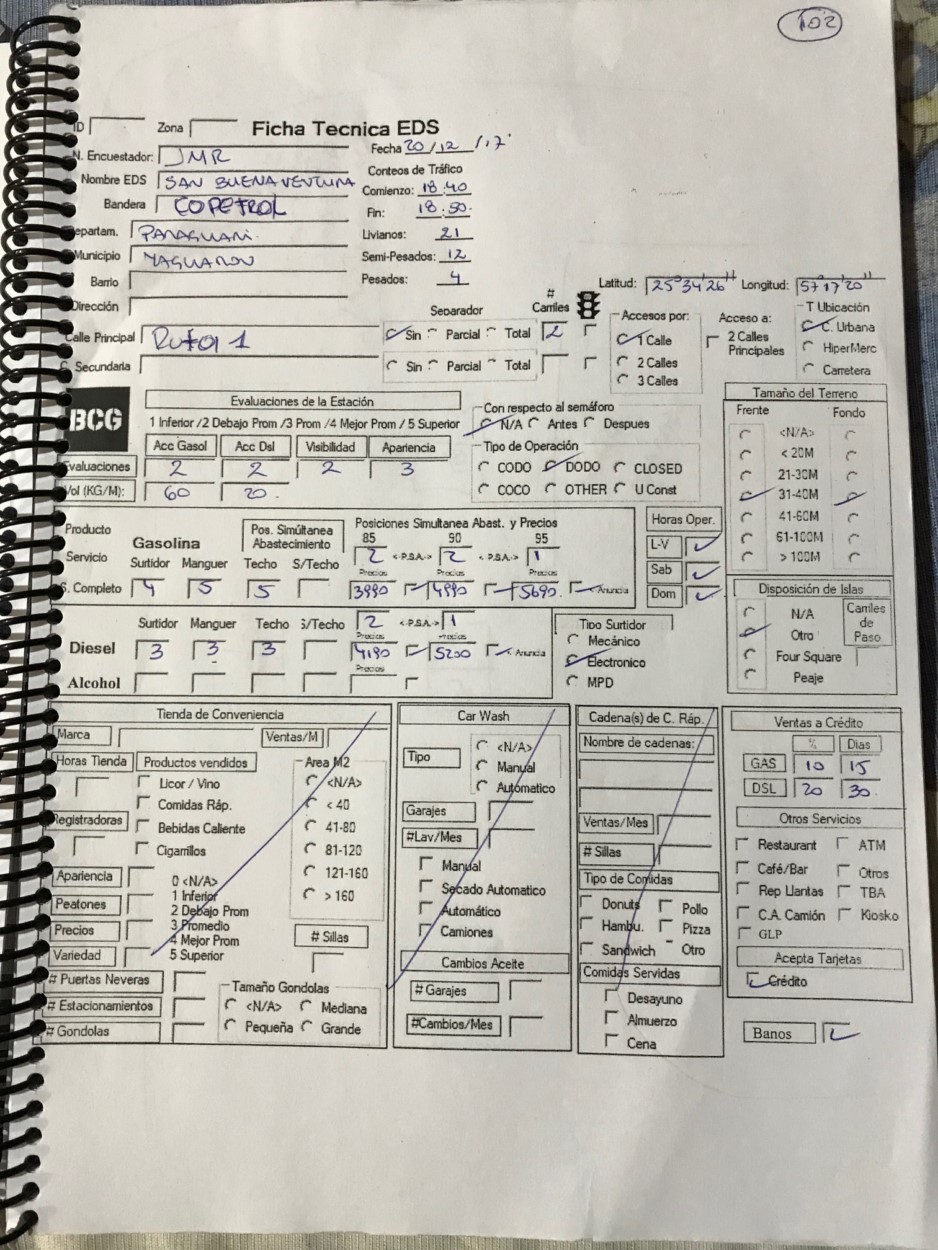 102
ID Zona Ficha Tecnica EDS
N. Encuestador: JMR Fecha 20/12/17
Nombre EDS SAN BUENAVENTURA Conteos de Tráfico
Bandera COPETROL Comienzo: 18:40
Fin: 18:50
Departam. PARAGUARI Livianos: 21
Municipio YAGUARON Semi-Pesados: 12
Barrio Pesados: 4
Latitud: 25°34'26" Longitud: 57°17'20"
Dirección
Calle Principal Ruta 1 Separador # Carriles
Sin Parcial Total 2
C. Secundaria Sin Parcial Total
Accesos por:
1 Calle
2 Calles
3 Calles
Acceso a:
2 Calles Principales
T Ubicación
C. Urbana
HiperMerc
Carretera
BCG
Evaluaciones de la Estación
1 Inferior /2 Debajo Prom /3 Prom /4 Mejor Prom / 5 Superior
Acc Gasol Acc Dsl Visibilidad Apariencia
Evaluaciones 2 2 2 3
Vol (KG/M): 60 20
Con respecto al semáforo
N/A Antes Despues
Tipo de Operación
CODO DODO CLOSED
COCO OTHER U Const
Tamaño del Terreno
Frente Fondo
<N/A>
< 20M
21-30M
31-40M
41-60M
61-100M
> 100M
Producto Gasolina Pos. Simúltanea Abastecimiento Posiciones Simultanea Abast. y Precios
85 90 95
Servicio 2 <P.S.A.> 2 <P.S.A.> 1
Surtidor Manguer Techo S/Techo Precios Precios Precios
S. Completo 4 5 5 3990 4990 5690 < Anuncia
Horas Oper.
L-V
Sab
Dom
Disposición de Islas
N/A
Otro
Four Square
Peaje
Carriles de Paso
Surtidor Manguer Techo S/Techo 2 <P.S.A.> 1
Precios Precios
Diesel 3 3 3 4190 5200 < Anuncia
Precios
Alcohol
Tipo Surtidor
Mecánico
Electronico
MPD
Tienda de Conveniencia
Marca Ventas/M
Horas Tienda Productos vendidos Area M2
Licor / Vino <N/A>
Comidas Ráp. < 40
Registradoras Bebidas Caliente 41-80
Cigarrillos 81-120
Apariencia 0 <N/A> 121-160
1 Inferior > 160
Peatones 2 Debajo Prom
Precios 3 Promedio
4 Mejor Prom # Sillas
Variedad 5 Superior
# Puertas Neveras Tamaño Gondolas
# Estacionamientos <N/A> Mediana
# Gondolas Pequeña Grande
Car Wash
Tipo <N/A>
Manual
Automatico
Garajes
#Lav/Mes
Manual
Secado Automatico
Automático
Camiones
Cambios Aceite
# Garajes
#Cambios/Mes
Cadena(s) de C. Ráp.
Nombre de cadenas:
Ventas/Mes
# Sillas
Tipo de Comidas
Donuts Pollo
Hambu. Pizza
Sandwich Otro
Comidas Servidas
Desayuno
Almuerzo
Cena
Ventas a Crédito
% Dias
GAS 10 15
DSL 20 30
Otros Servicios
Restaurant ATM
Café/Bar Otros
Rep Llantas TBA
C.A. Camión Kiosko
GLP
Acepta Tarjetas
Crédito
Banos